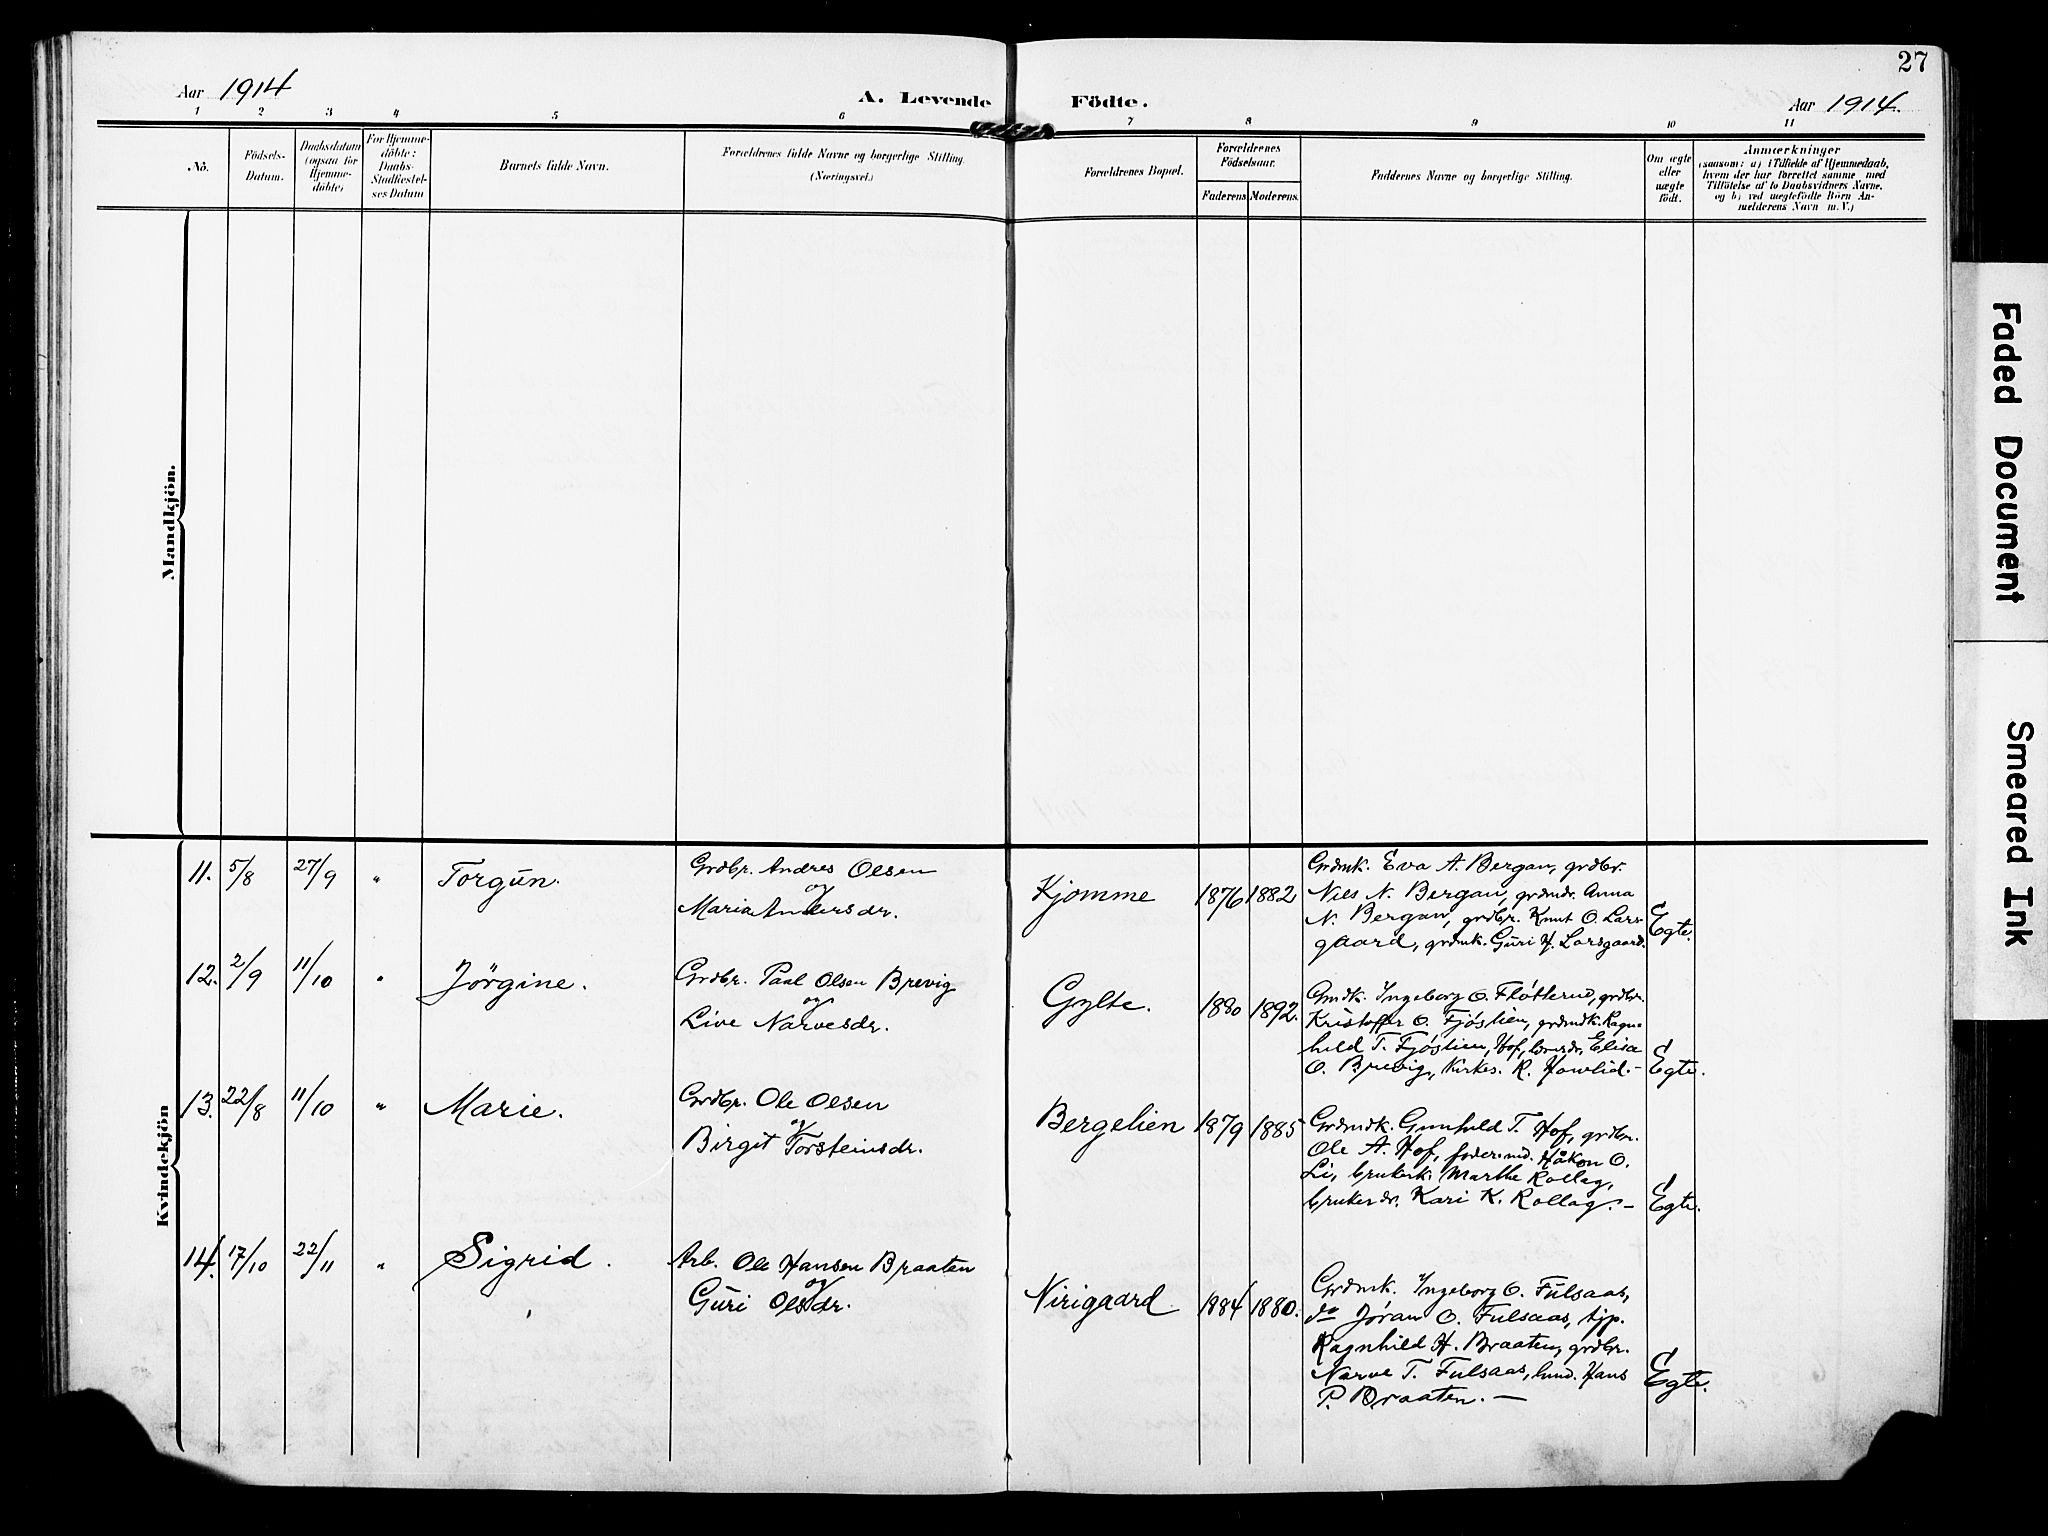 27
Aar 1914
A. Levende Födte.
Aar 1914.
1 2 3 4 5 6 7 8 9 10 11
No.
Födsels-
Datum.
Daabsdatum
(ogsaa for
Hjemme-
döbte)
For Hjemme-
döbte:
Daabs-
Stadfæstel-
ses Datum
Barnets fulde Navn.
Forældrenes fulde Navne og borgerlige Stilling.
(Næringsvei.)
Forældrenes Bopæl.
Forældrenes
Födselsaar.
Faderens
Moderens.
Faddernes Navne og borgerlige Stilling.
Om ægte
eller
uægte
födt.
Anmærkninger
(saasom: a) i Tilfælde af Hjemmedaab,
hvem der har forrettet samme, med
Tilföielse af to Daabsvidners Navne,
og b) ved uægtefödte Börn An-
mælderens Navn m. V.)
Mandkjön.
Kvindekjön
11. 5/8 27/9 " Torgún.
Grdbr. Andres Olsen
og
Maria Andersdr.
Kjomme 1876 1882
Grdmk. Eva A. Bergan, grdbr.
Nils N. Bergan, grdmdr. Anna
N. Bergan, grdbr. Knut O. Lars-
gaard, grdmk. Gúri H. Larsgaard.
Egte.
12. 2/9 11/10 " Jörgine.
Grdbr. Paal Olsen Brevig
og
Live Narvesdr.
Gylte. 1880 1892.
Gmdk. Ingeborg O. Fløtterud, grdbr.
Kristoffer O. Fjöslien, grdmdk. Ragn-
hild T. Fjöslien, Hof, Elisa
O. Brevig, Kirkes. R. Howlid. –
Egte.
13. 22/8 11/10 " Marie.
Grdbr. Ole Olsen
og
Birgit Torsteinsdr.
Bergelien 1879 1885
Grdmdk. Gunhild T. Hof, grdbr.
Ole A. Hof, foder.md. Håkon O.
Li, brukerk. Marthe Rollag,
brukerdr. Kari K. Rollag. –
Egte.
14. 17/10 22/11 " Sigrid.
Arb. Ole Hansen Braaten
og
Gúri Olsdr.
Nirigaard 1884 1880.
Grdmk. Ingeborg O. Fúlsaas,
do Jøran O. Fulsaas, tjp.
Ragnhild H. Braaten, grdbr.
Narve T. Fúlsaas, Hans
P. Braaten. –
Egte.
Faded Document
Smeared Ink